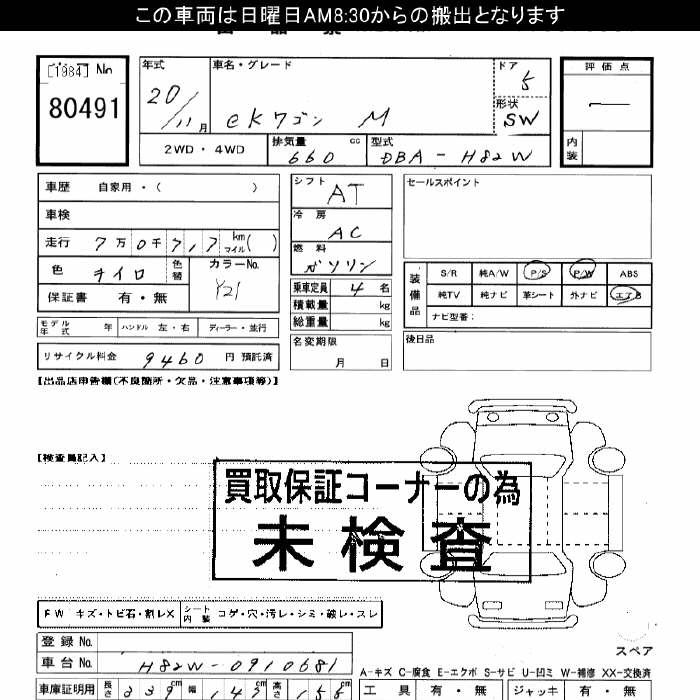 この車両は日曜日AM8:30からの搬出となります
[1984] No
80491
年式 20/11月
車名・グレード eKワゴン M
ドア 5
形状 SW
評価点 —
内装
2WD・4WD
排気量 660 cc
型式 DBA-H82W
車歴 自家用・( )
車検
走行 7万0千717 km マイル( )
色 チイロ 色替
カラーNo. Y21
保証書 有・無
シフト AT
冷房 AC
燃料 ガソリン
乗車定員 4名
積載量 kg
総重量 kg
セールスポイント
装備品 S/R 純A/W P/S P/W ABS
純TV 純ナビ 革シート 外ナビ エアB
ナビ型番:
モデル年式 年 ハンドル 左・右 ディーラー・並行
リサイクル料金 9460 円 預託済
名変期限 月 日
後日品
【出品店申告欄(不良箇所・欠品・注意事項等)】
【検査員記入】
買取保証コーナーの為
未検査
FW キズ・トビ石・割レX シート内装 コゲ・穴・汚レ・シミ・破レ・スレ
登録No.
車台No. H82W-0910681
スペア
A-キズ C-腐食 E-エクボ S-サビ U-凹ミ W-補修 XX-交換済
車庫証明用 長さ 339cm 幅 147cm 高さ 155cm
工具 有・無 ジャッキ 有・無